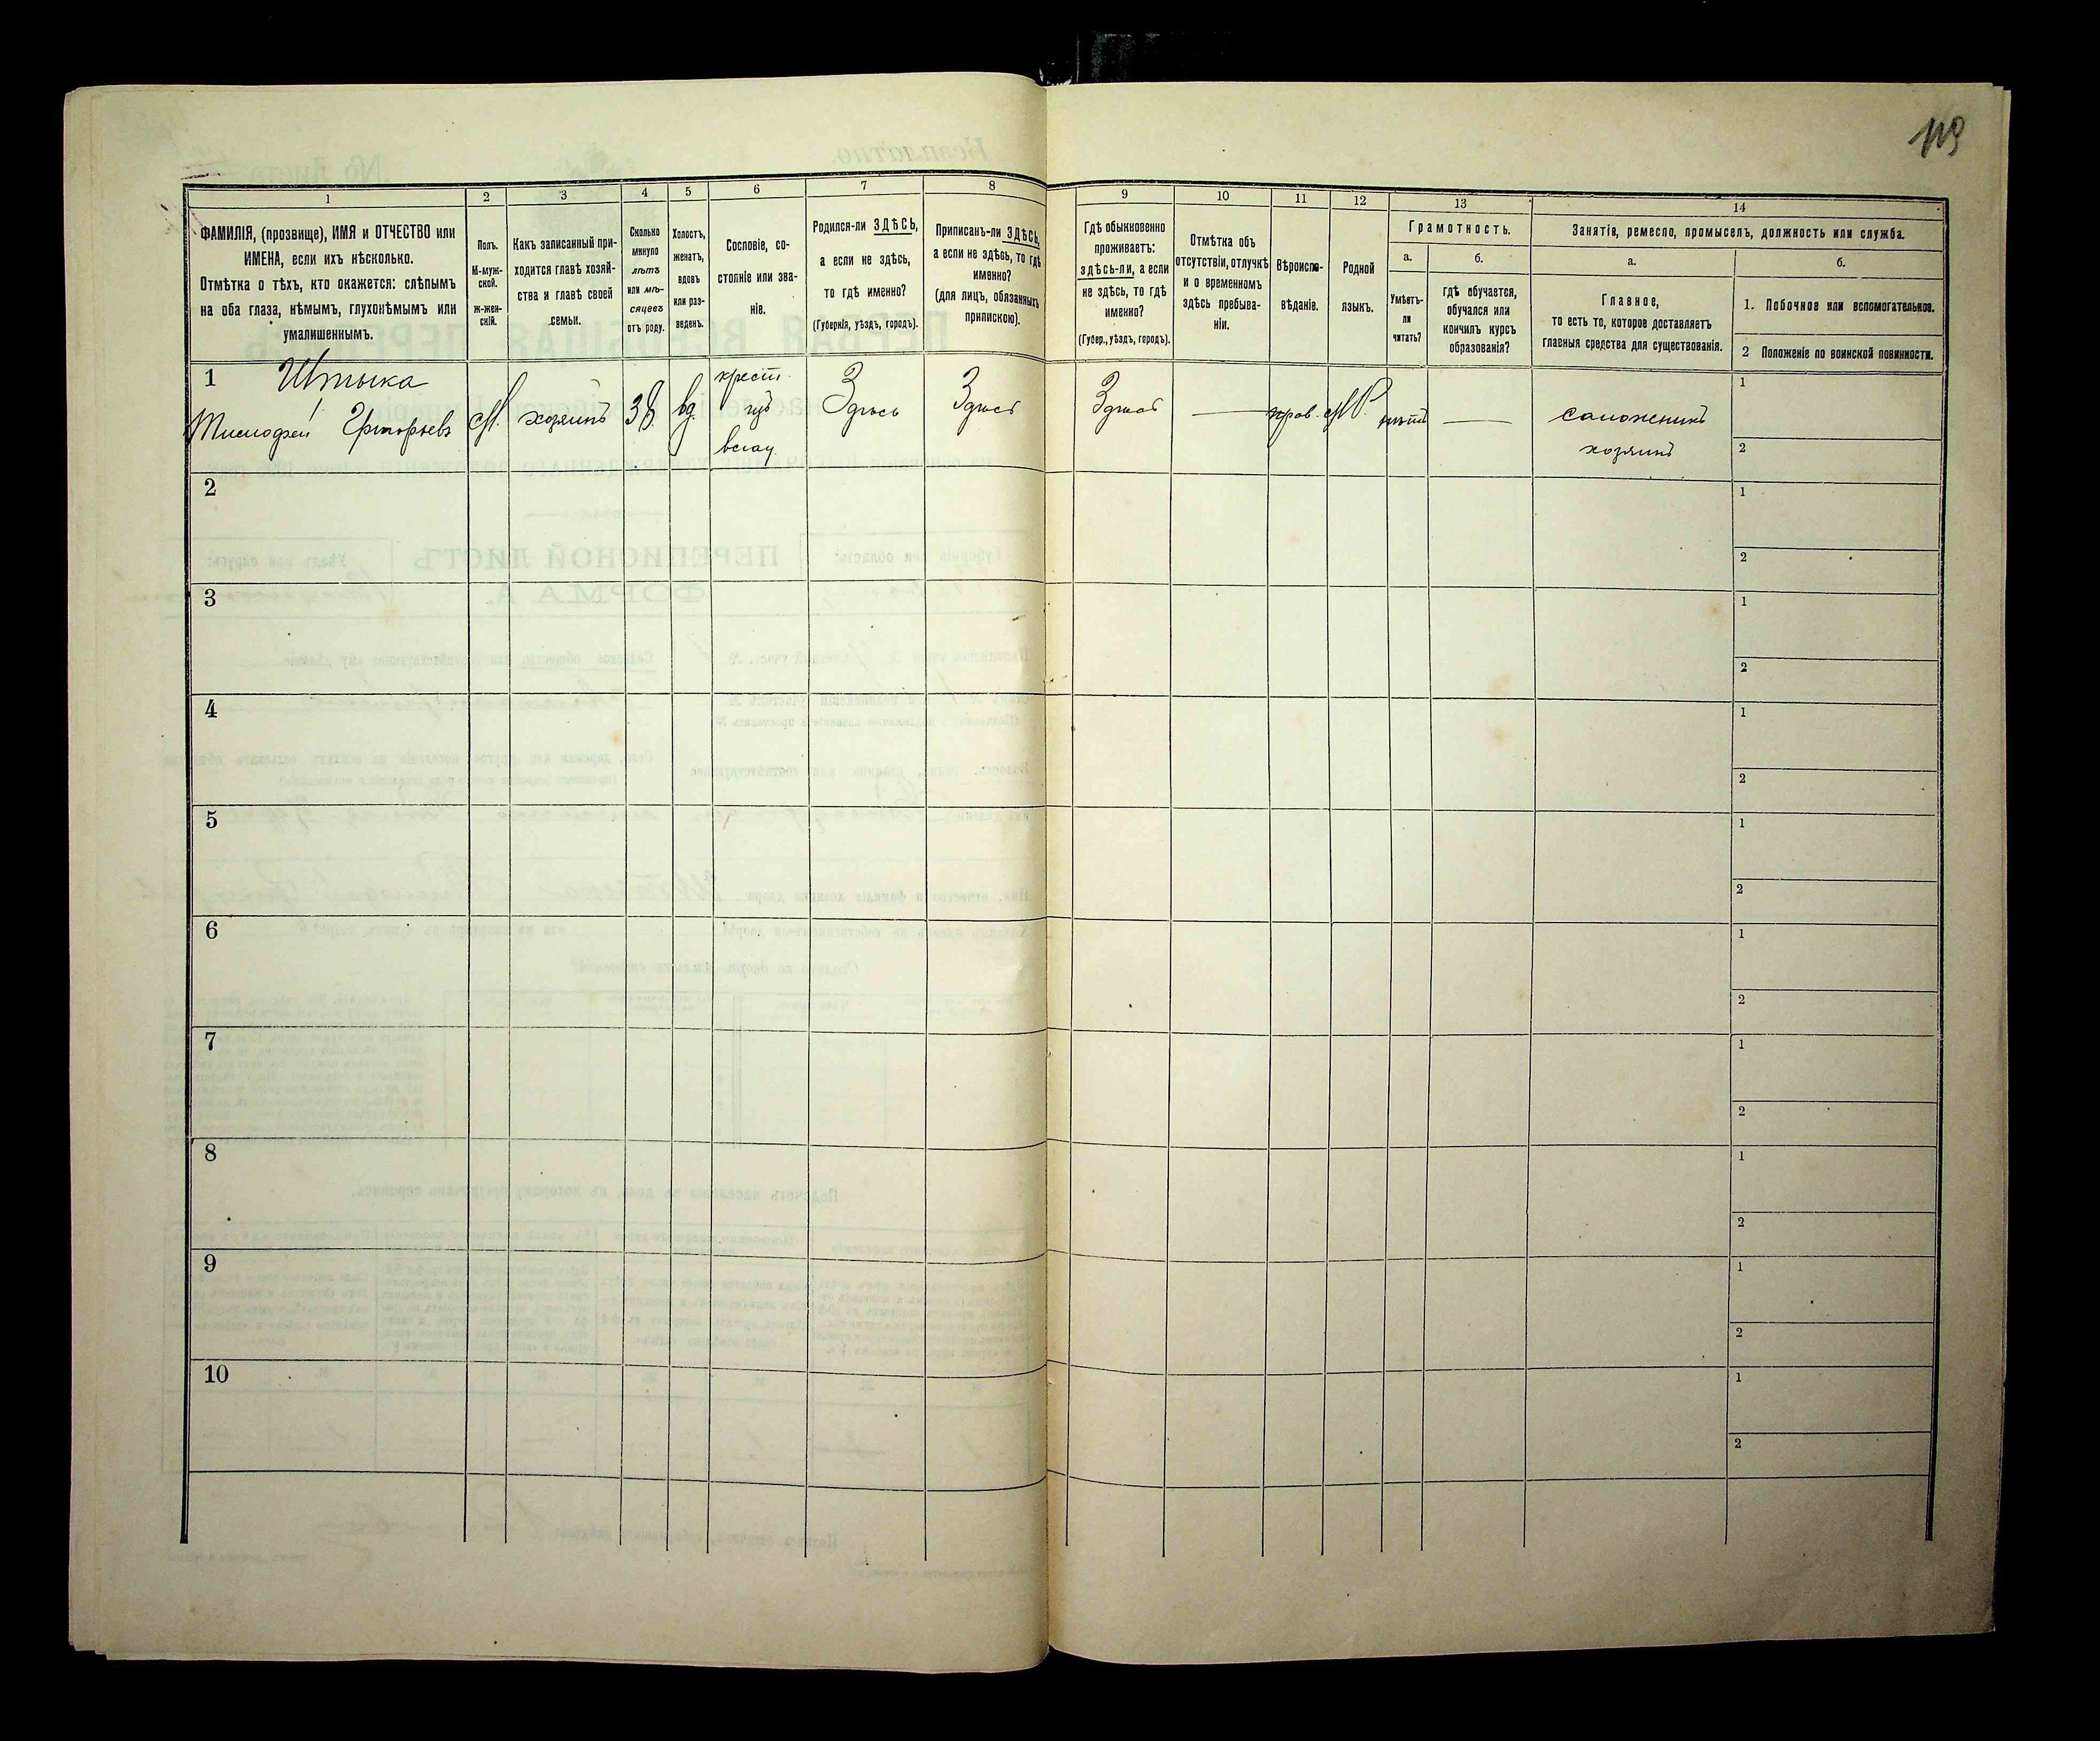 119
1 2 3 4 5 6 7 8 9 10 11 12 13 14
ФАМИЛІЯ, (прозвище), ИМЯ и ОТЧЕСТВО или
ИМЕНА, если ихъ нѣсколько.
Отмѣтка о тѣхъ, кто окажется: слѣпымъ
на оба глаза, нѣмымъ, глухонѣмымъ или
умалишеннымъ.
Полъ.
М-муж-
ской.
ж-жен-
скій.
Какъ записанный при-
ходится главѣ хозяй-
ства и главѣ своей
семьи.
Сколько
минуло
лѣтъ
или мѣ-
сяцевъ
отъ роду.
Холостъ,
женатъ,
вдовъ
или раз-
веденъ.
Сословіе, со-
стояніе или зва-
ніе.
Родился-ли ЗДѢСЬ,
а если не здѣсь,
то гдѣ именно?
(Губернія, уѣздъ, городъ).
Приписанъ-ли ЗДѢСЬ,
а если не здѣсь, то гдѣ
именно?
(для лицъ, обязанныхъ
припискою).
Гдѣ обыкновенно
проживаетъ:
здѣсь-ли, а если
не здѣсь, то гдѣ
именно?
(Губер., уѣздъ, городъ).
Отмѣтка объ
отсутствіи, отлучкѣ
и о временномъ
здѣсь пребыва-
ніи.
Вѣроиспо-
вѣданіе.
Родной
языкъ.
Грамотность.
а.
Умѣетъ-
ли
читать?
б.
гдѣ обучается,
обучался или
кончилъ курсъ
образованія?
Занятія, ремесло, промыселъ, должность или служба.
а.
Главное,
то есть то, которое доставляетъ
главныя средства для существованія.
б.
1. Побочное или вспомогательное.
2 Положеніе по воинской повинности.
1 Штыка
Тимофей Григорьевъ
М.
хозяинъ
38
вд.
крест.
Здѣсь
Здѣсь
Здѣсь
прав.
М.Р.
нѣтъ
сапожникъ
хозяинъ
1
2
2
1
2
3
1
2
4
1
2
5
1
2
6
1
2
7
1
2
8
1
2
9
1
2
10
1
2